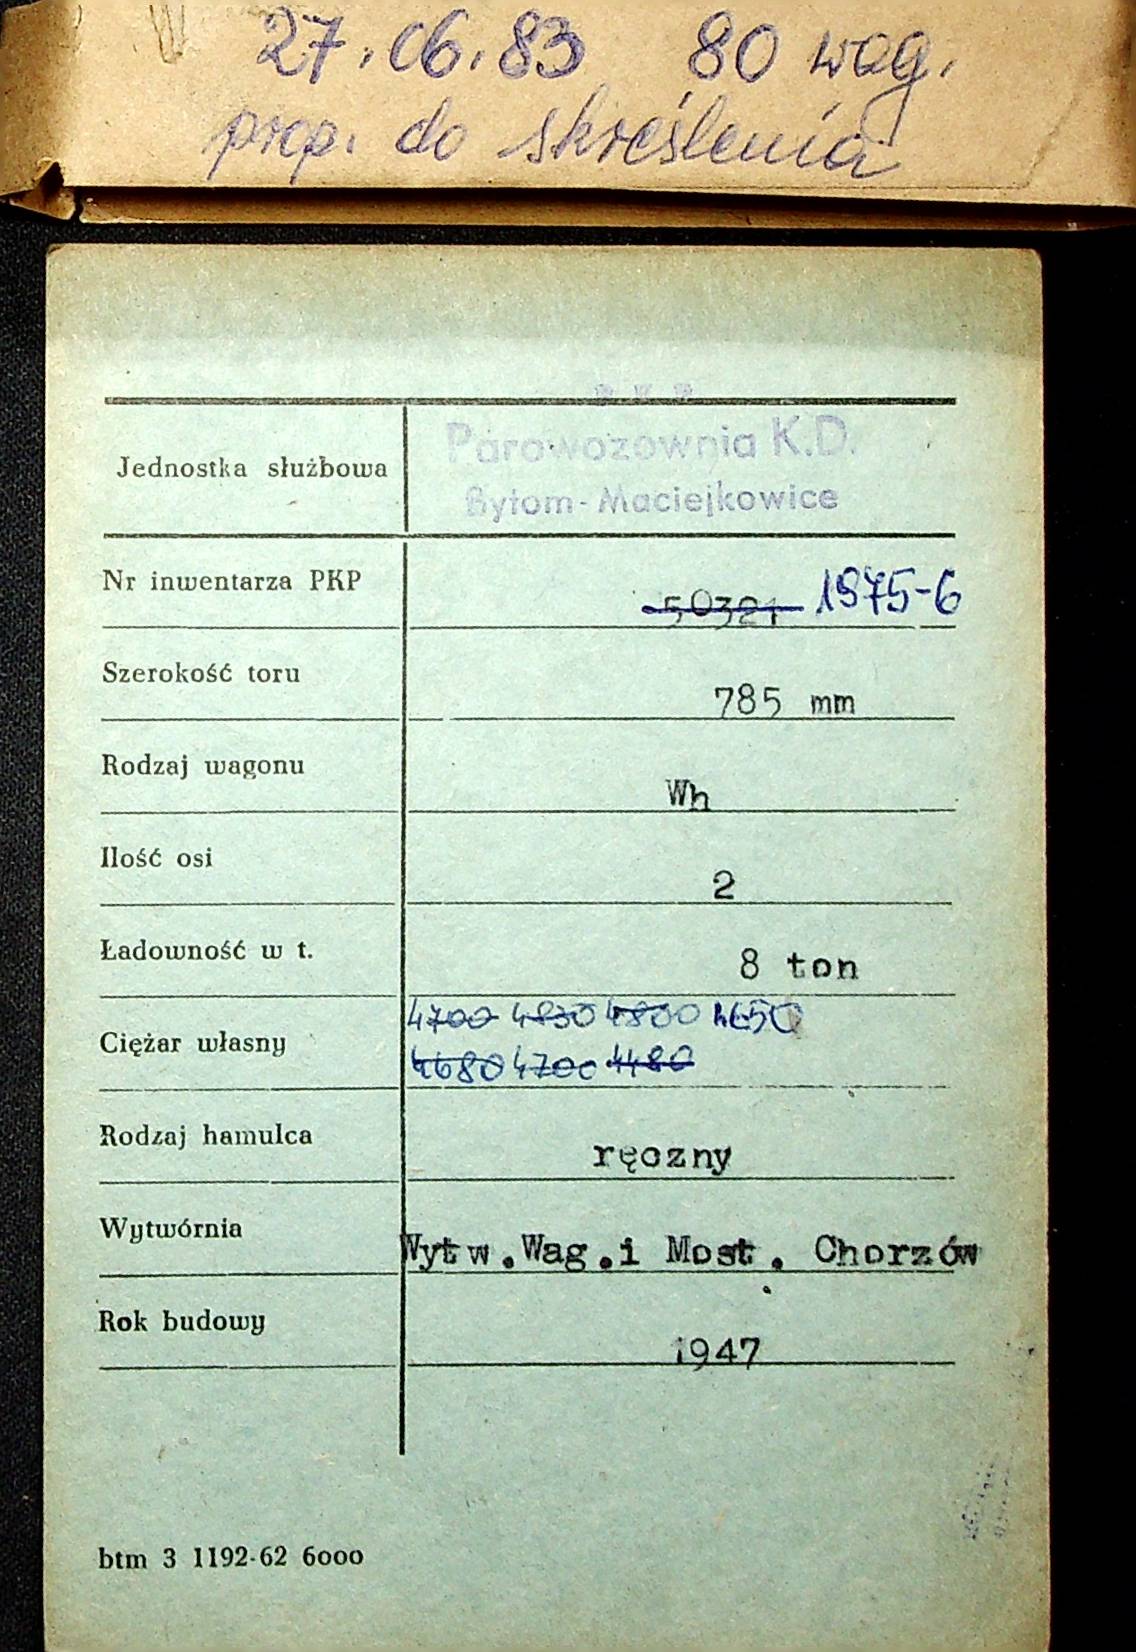 27.06.83 80 wag.
prop. do skreślenia
P K P
Parowozownia K.D.
Bytom-Maciejkowice
Jednostka służbowa
Nr inwentarza PKP 50321 1975-6
Szerokość toru 785 mm
Rodzaj wagonu Wh
Ilość osi 2
Ładowność w t. 8 ton
4700 4830 4800 4650
Ciężar własny
4680 4700 4480
Rodzaj hamulca ręczny
Wytwórnia Wytw.Wag.i Most. Chorzów
Rok budowy 1947
btm 3 1192-62 6000